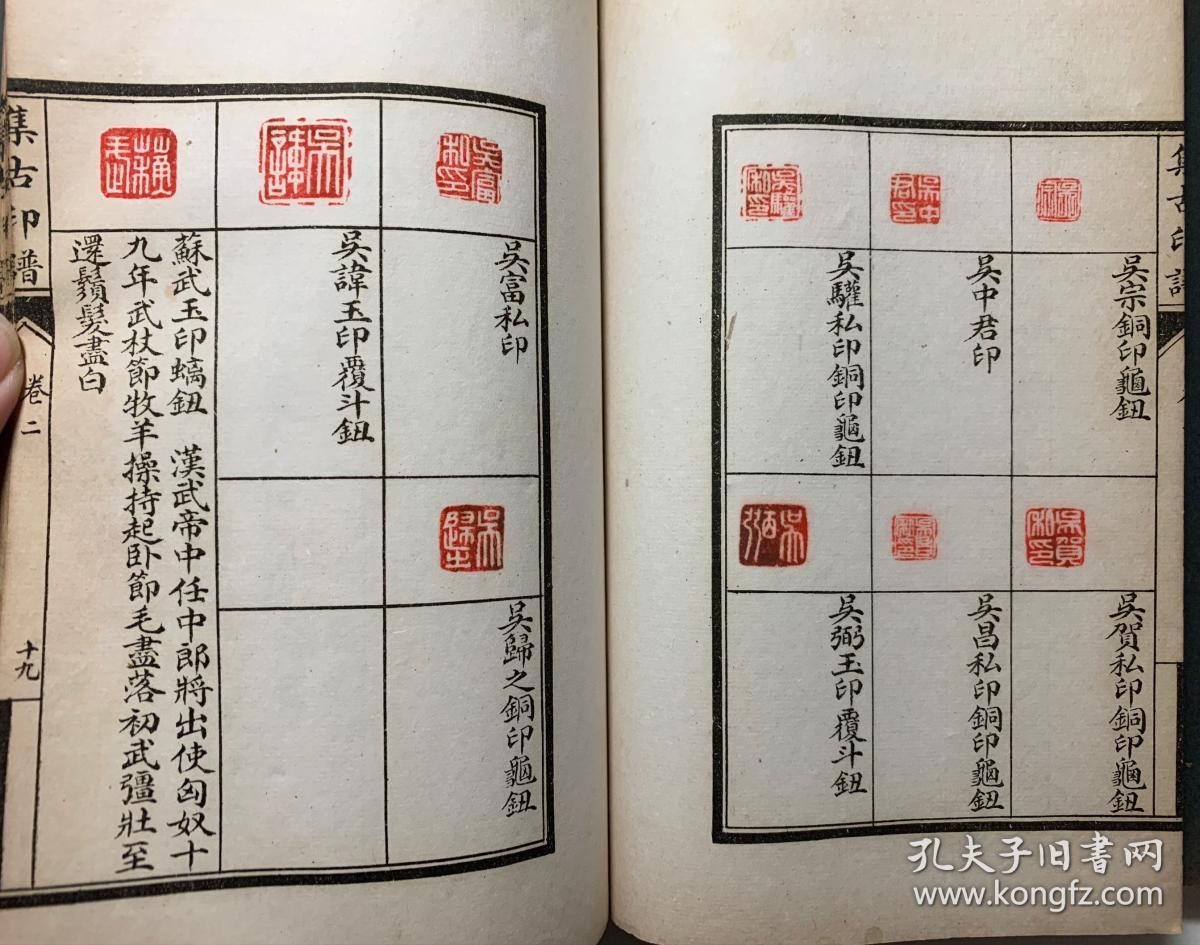 集古印譜
吳宗銅印龜鈕
吳中君印
吳驩私印銅印龜鈕
吳賀私印
吳賀私印銅印龜鈕
吳昌私印銅印龜鈕
吳弼
吳弼玉印覆斗鈕
吳富私印
吳富私印
吳諱玉印覆斗鈕
吳歸之
吳歸之銅印龜鈕
蘇武
蘇武玉印螭鈕 漢武帝中任中郎將出使匈奴十
九年武杖節牧羊操持起卧節毛盡落初武彊壯至
還鬚髮盡白
集古印譜
卷二
十九
孔夫子旧书网
www.kongfz.com